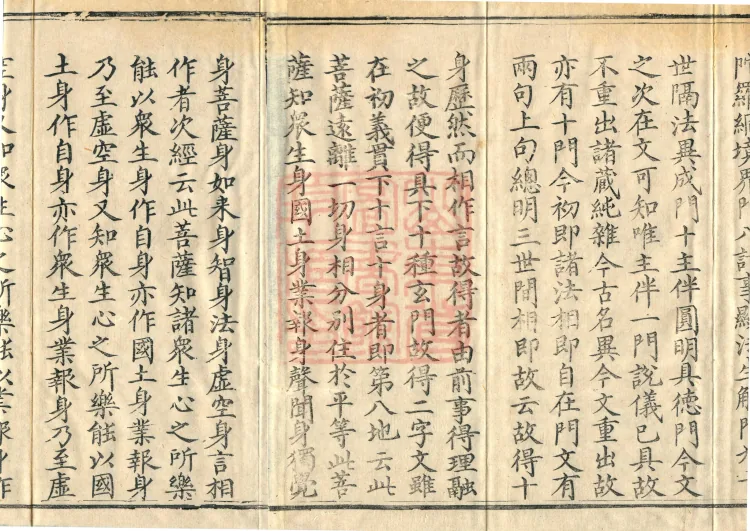 陀羅網境界門八託事顯法生解門九十
世隔法異成門十主伴圓明具德門今文
之次在文可知唯主伴一門說儀已具故
不重出諸藏純雜今古名異今文重出故
亦有十門今初即諸法相即自在門文有
兩句上句總明三世間相即故云故得十
身歷然而相作言故得者由前事得理融
之故便得具下十種玄門故得二字文雖
在初義貫下十言十身者即第八地云此
菩薩遠離一切身相分別住於平等此菩
薩知衆生身國土身業報身聲聞身獨覺
身菩薩身如来身智身法身虛空身言相
作者次經云此菩薩知諸衆生心之所樂
能以衆生身作自身亦作國土身業報身
乃至虛空身又知衆生心之所樂能以國
土身作自身亦作衆生身業報身乃至虛
空身又知衆生心之所樂能以業報身作